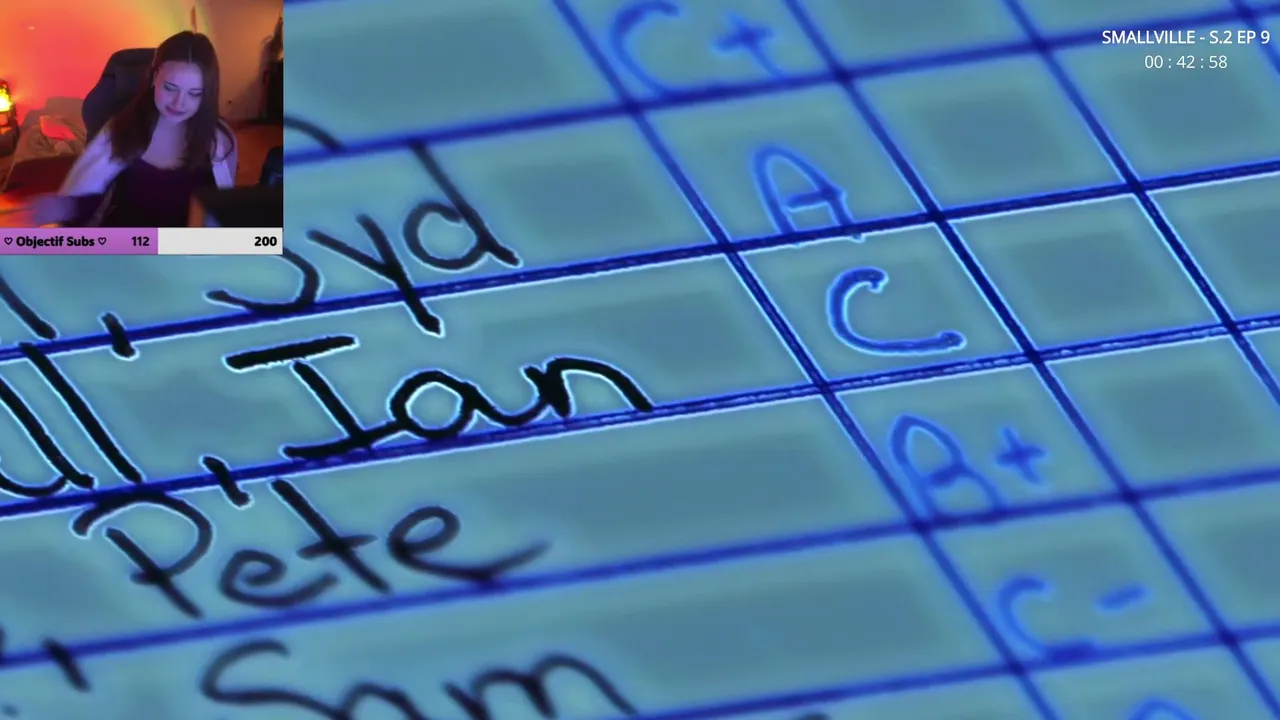 SMALLVILLE - S.2 EP 9
00 : 42 : 58
♡ Objectif Subs ♡ 112 200
C+
Syd A
Ian C
Pete B+
Sam C-